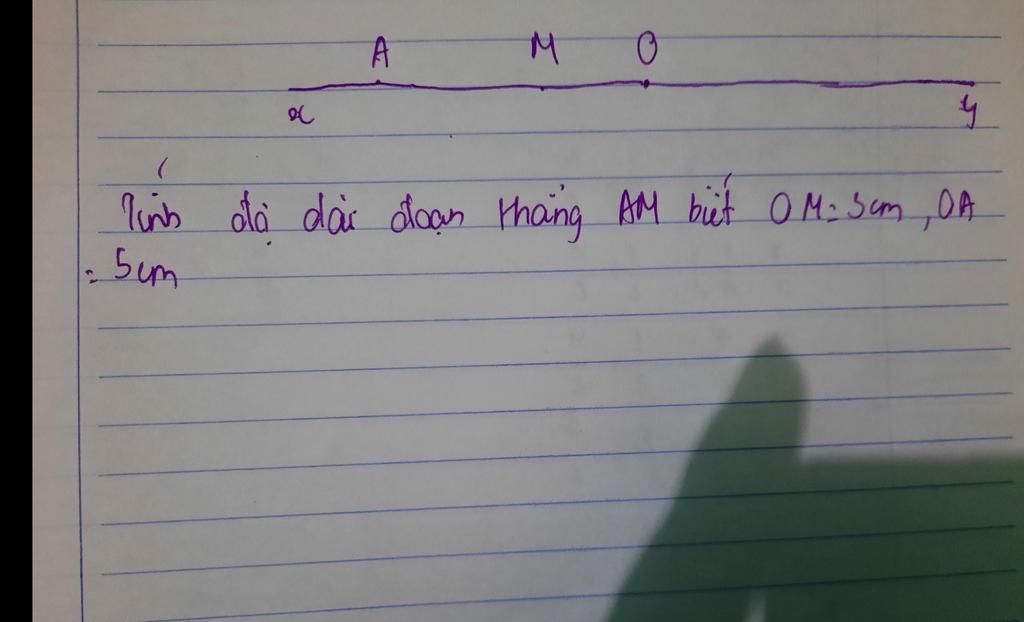 A M O
x y
Tính độ dài đoạn thẳng AM biết OM= 3cm, OA
= 5cm